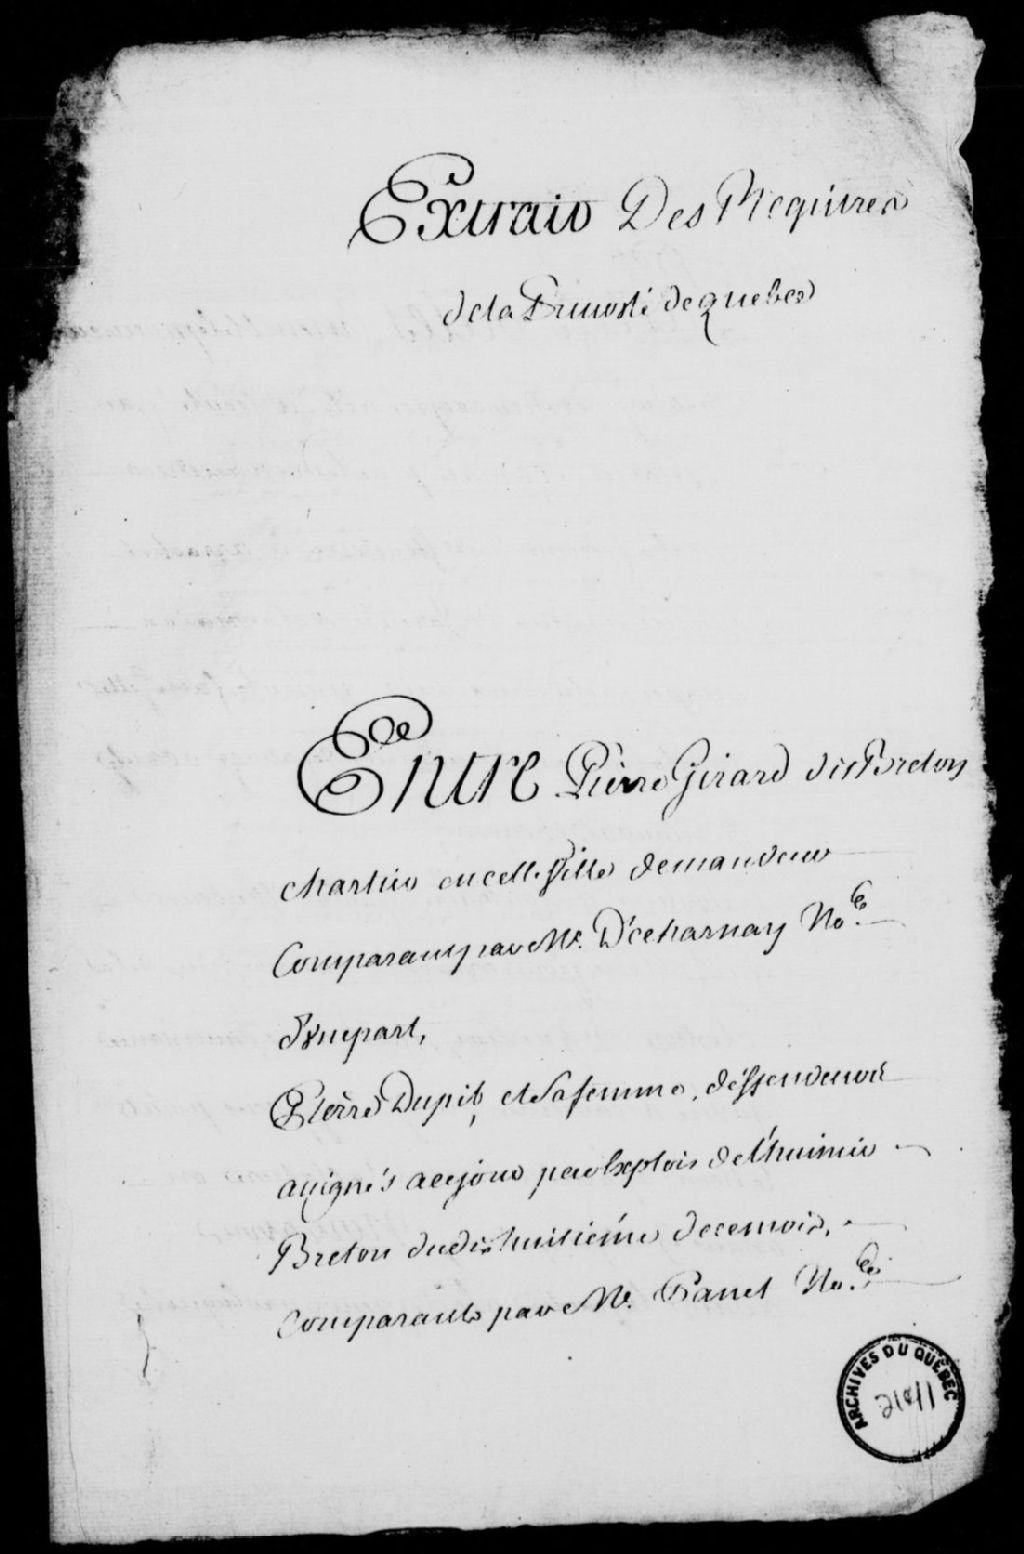 Extrait Des Registres
de la Prevosté de quebec
Entre Pierre Girard dit Breton
chartier en cette ville demandeur
Comparant par Me. Decharnay No.re
d'une part,
Pierre Dupil, et Sa femme, deffendeurs
assignés a ce jour par Exploit de l'huissier
Breton du dix huitiéme de ce mois,
comparants par Me. Panet No.re
ARCHIVES DU QUÉBEC